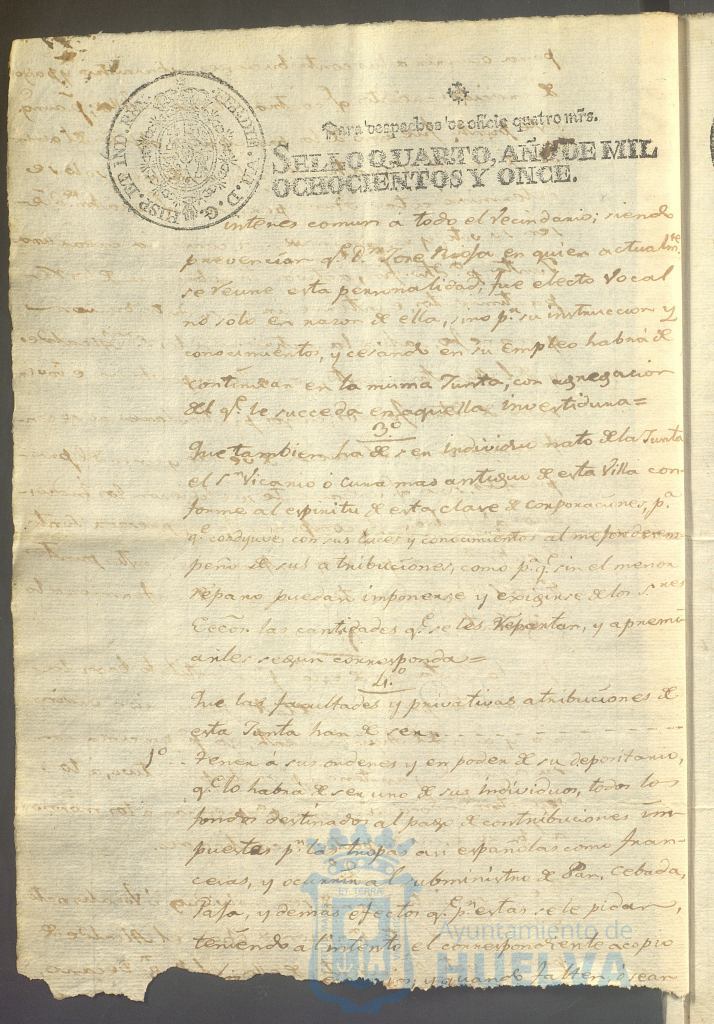 FERDIN. VII. D. G. HISP. ET IND. REX.
Para despachos de oficio quatro mrs.
SELLO QUARTO, AÑO DE MIL
OCHOCIENTOS Y ONCE.
interes comun á todo el Vecindario; siendo
prevencion qe. Dn. Jose en quien actualmte.
se reune esta personalidad, fue electo Vocal
no solo en razon de ella, sino pr. su instruccion y
conocimientos, y cesando en su empleo habrá de
continuar en la misma Junta, con agregacion
del qe. le succeda en aquella investidura=
3.o
Que tambien ha de ser individuo nato de la Junta
el Sr. Vicario ó Cura mas antiguo de esta Villa con-
forme al espiritu de esta clase de corporaciones, pa.
qe. coadyuve con sus luces y conocimientos al mejor desem-
peño de sus atribuciones, como pa. qe. sin el menor
reparo puedan imponerse y exigirse de los Sres.
Eccos. las cantidades qe. se les repartan, y apremi-
arles segun corresponda=
4.o
Que las facultades y privativas atribuciones de
esta Junta han de ser
1o. tener á sus ordenes y en poder de su depositario,
qe. lo habrá de ser uno de sus individuos, todos los
fondos destinados al pago de contribuciones im-
puestas pr. las tropas asi españolas como fran-
cesas, y ocurrir al subministro de Pan, Cebada,
Paja, y demas efectos qe. pr. estas se le pidan,
teniendo al intento el correspondiente acopio
y quando falten ó sean
Ayuntamiento de
HUELVA